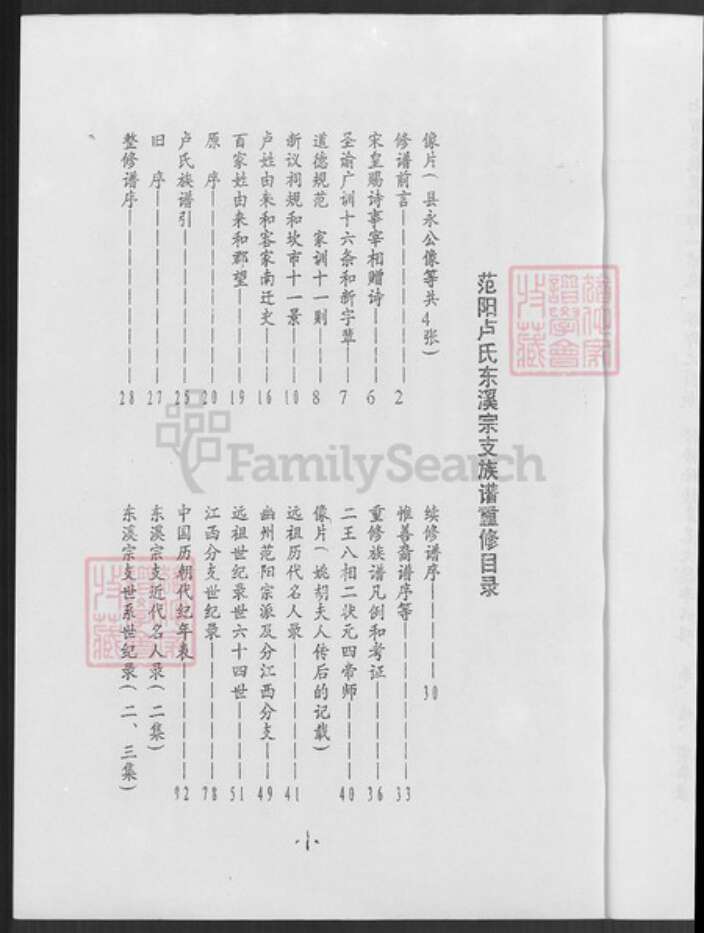 范阳卢氏东溪宗支族谱重修目录
像片(县永公像等共4张)
修谱前言 2
宋皇赐诗事宰相赠诗 6
圣谕广训十六条和新字辈 7
道德规范 家训十一则 8
新议祠规和坎市十一景 10
卢姓由来和客家南迁史 16
百家姓由来和郡望 19
原 序 20
卢氏族谱引 25
旧 序 27
整修谱序 28
续修谱序 30
惟善斋谱序等 33
重修族谱凡例和考证 36
二王八相二状元四帝师 40
像片(姚胡夫人传后的记载)
远祖历代名人录 41
幽州范阳宗派及分江西分支 49
远祖世纪录世六十四世 51
江西分支世纪录 78
中国历朝代纪年表 92
东溪宗支近代名人录(二集)
东溪宗支世系世纪录(二、三集)
-1-
FamilySearch